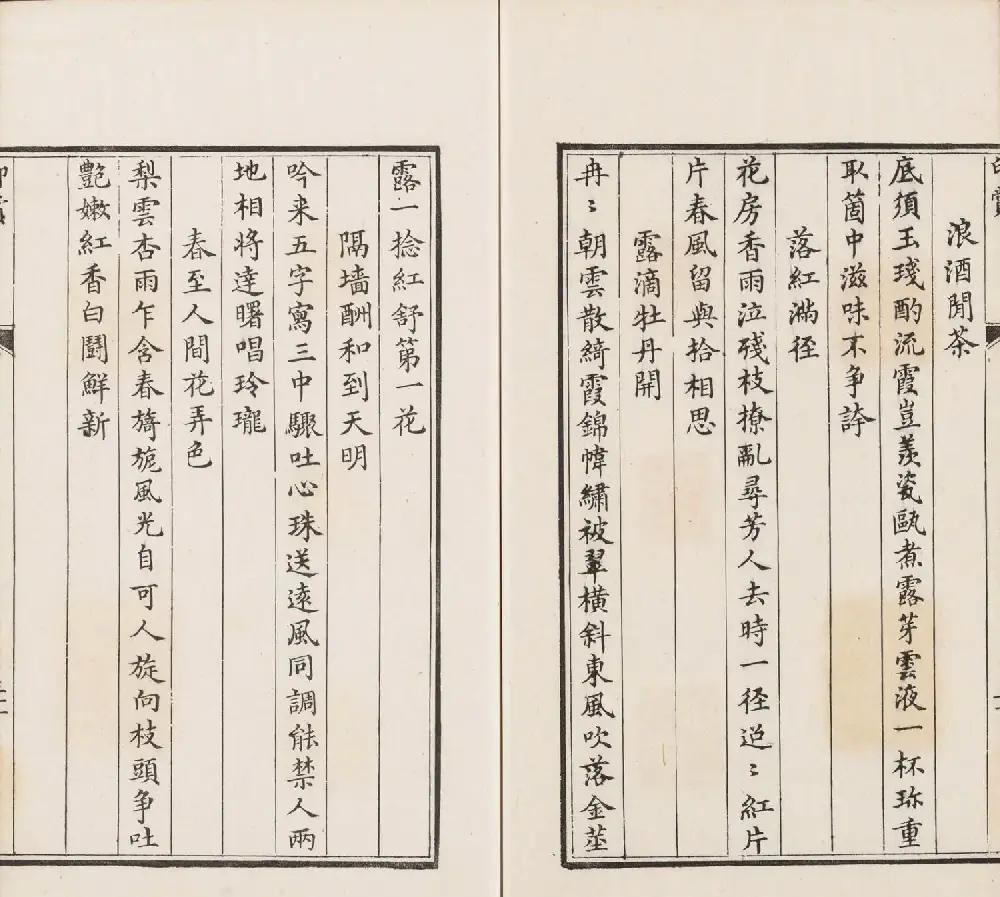 浪酒閒茶
底須玉琖酌流霞豈羨瓷甌煮露芽雲液一杯珎重
取箇中滋味不争誇
落紅滿径
花房香雨泣殘枝撩亂尋芳人去時一径迢〻紅片
片春風留與拾相思
露滴牡丹開
冉〻朝雲散綺霞錦幃繡被翠橫斜東風吹落金莖
露一捻紅舒第一花
隔墻酬和到天明
吟来五字寫三中驟吐心珠送遠風同調能禁人兩
地相將達曙唱玲瓏
春至人間花弄色
梨雲杏雨乍含春旖旎風光自可人旋向枝頭争吐
艷嫩紅香白鬪鮮新